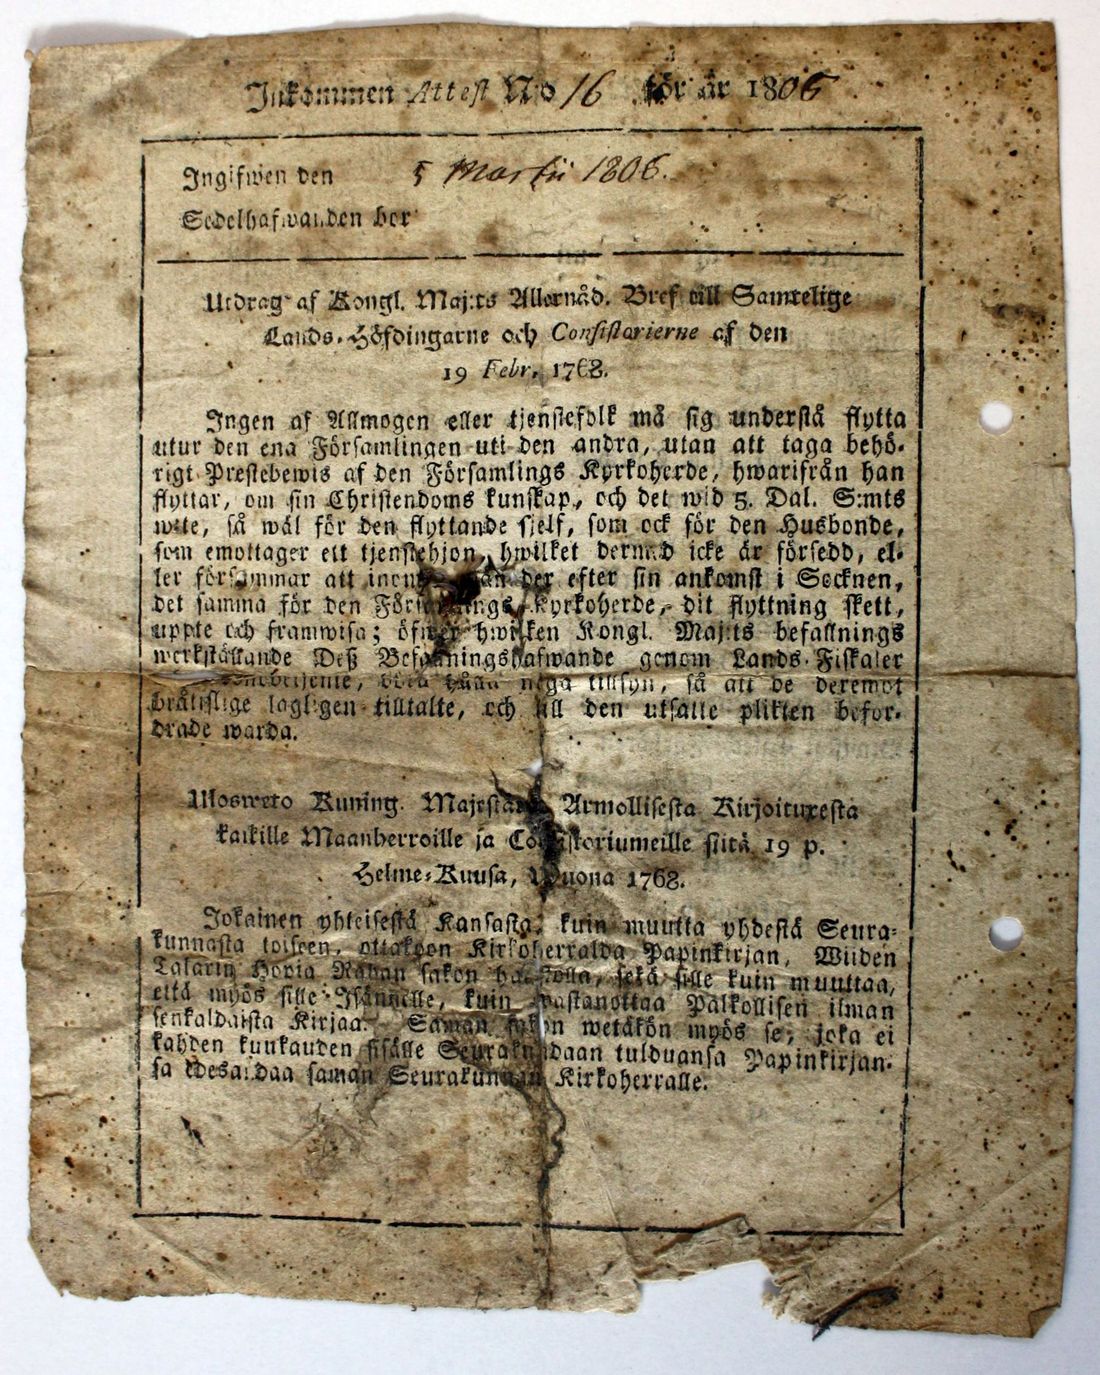 Inkommen Attest N:o 16 för år 1806
Ingifwen den 5 Martii 1806.
Sedelhafwanden bor
Utdrag af Kongl. Maj:ts Allernåd. Bref till Samtelige
Lands-Höfdingarne och Consistorierne af den
19 Febr. 1768.
Ingen af Allmogen eller tjenstefolk må sig understå flytta
utur den ena Församlingen uti den andra, utan att taga behö-
rigt Prestebewis af den Församlings Kyrkoherde, hwarifrån han
flyttar, om sin Christendoms kunskap, och det wid 5. Dal. S:mts
wite, så wäl för den flyttande sjelf, som ock för den Husbonde,
som emottager ett tjenstehjon, hwilket dermed icke är försedd, el-
ler försummar att inom der efter sin ankomst i Socknen,
det samma för den Församlings Kyrkoherde, dit flyttning skett,
uppte och framwisa; öfwer hwilken Kongl. Maj:ts befallnings
werkställande Deß Befallningshafwande genom Lands-Fiskaler
böra hafwa noga tillsyn, så att de deremot
brätislige lagligen tilltalte, och till den utsatte plikten befor-
drade warda.
Ulosweto Kuning. Majestätin Armollisesta Kirjoituxesta
kaikille Maanherroille ja Consistoriumeille siitä 19 p.
Helme-Kuusa, Wuona 1768.
Jokainen yhteisestä Kansasta, kuin muutta yhdestä Seura-
kunnasta toiseen, ottakoon Kirkoherralda Papinkirjan, Wiiden
Talarin Hopia Rahan sakon haastolla, sekä sille kuin muuttaa,
että myös sille Isännelle, kuin wastanottaa Palkollisen ilman
senkaldaista Kirjaa. Saman sakon wetäkön myös se, joka ei
kahden kuukauden sisälle Seurakundaan tulduansa Papinkirjan-
sa edesandaa saman Seurakunnan Kirkoherralle.